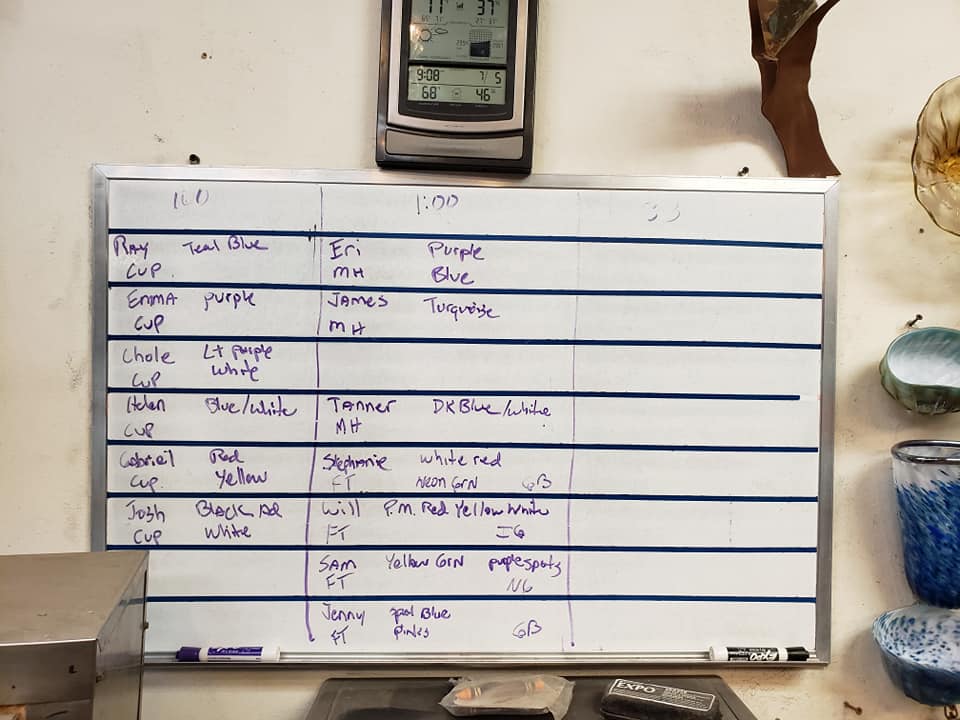 11 37
9:08 7/5
68 46
1:00
Ray Teal Blue
CUP
Eri Purple
MH Blue
Emma purple
CUP
James Turquoise
MH
Chole Lt purple
CUP white
Helen Blue/white
CUP
Tanner DK Blue/white
MH
Gabrieil Red
Cup Yellow
Stephanie white red
FT Neon GRN GB
Josh Black Red
CUP white
Will P.M. Red Yellow white
FT IG
SAM Yellow GRN purple spots
FT NG
Jenny Blue
FT Pinks GB
EXPO
EXPO